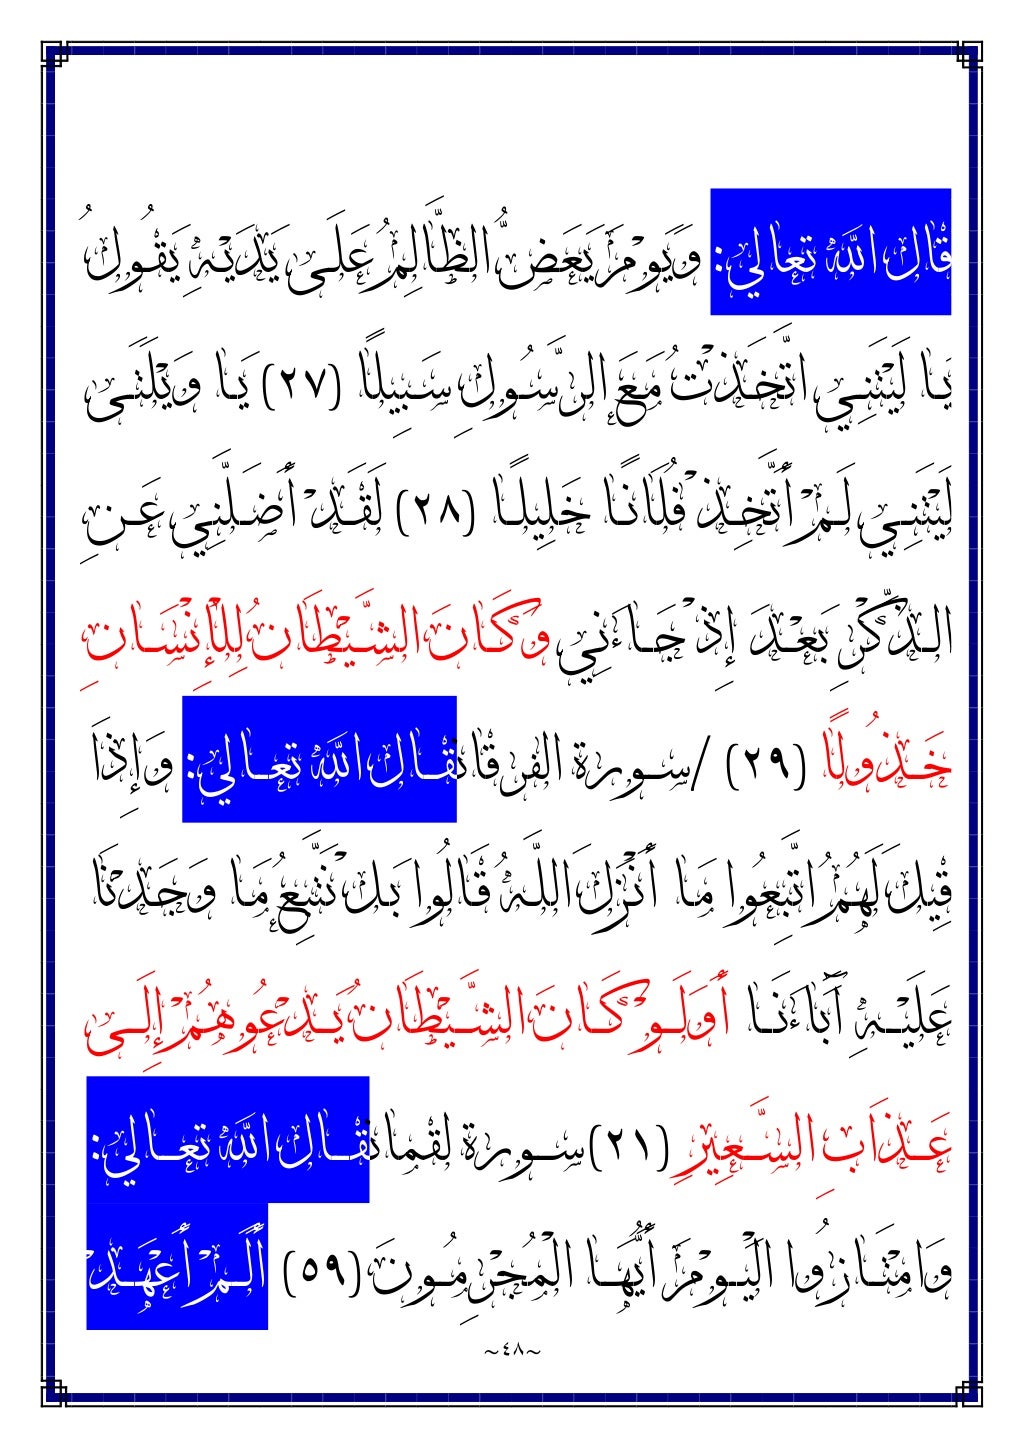 قال الله تعالي: وَيَوْمَ يَعَضُّ الظَّالِمُ عَلَى يَدَيْهِ يَقُولُ
يَا لَيْتَنِي اتَّخَذْتُ مَعَ الرَّسُولِ سَبِيلًا (٢٧) يَا وَيْلَتَى
لَيْتَنِي لَمْ أَتَّخِذْ فُلَانًا خَلِيلًا (٢٨) لَقَدْ أَضَلَّنِي عَنِ
الذِّكْرِ بَعْدَ إِذْ جَاءَنِي وَكَانَ الشَّيْطَانُ لِلْإِنْسَانِ
خَذُولًا (٢٩) /سورة الفرقانقال الله تعالي: وَإِذَا
قِيلَ لَهُمُ اتَّبِعُوا مَا أَنْزَلَ اللَّهُ قَالُوا بَلْ نَتَّبِعُ مَا وَجَدْنَا
عَلَيْهِ آبَاءَنَا أَوَلَوْ كَانَ الشَّيْطَانُ يَدْعُوهُمْ إِلَى
عَذَابِ السَّعِيرِ (٢١)سورة لقمانقال الله تعالي:
وَامْتَازُوا الْيَوْمَ أَيُّهَا الْمُجْرِمُونَ (٥٩) أَلَمْ أَعْهَدْ
~٤٨~